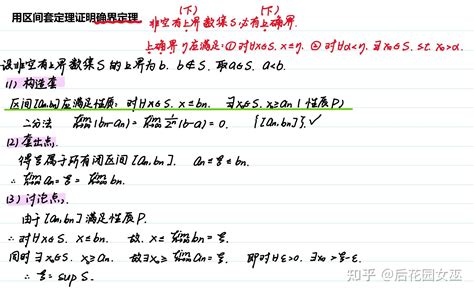 (下) (下)
用区间套定理证明确界定理 非空有上界数集S,必有上确界.
上确界η应满足:①对∀x∈S. x≤η. ②对∀α<η. ∃x₀∈S. s.t. x₀>α.
设非空有上界数集S的上界为b. b∉S. 取a∈S. a<b.
(1) 构造套
区间[an,bn]应满足性质: 对∀x∈S. x≤bn. ∃x₀∈S. x₀≥an (性质P)
二分法 lim(bn-an)=lim 1/2ⁿ(b-a)=0. {[an,bn]}. ✓
(2) 套出点.
得ξ属于所有闭区间[an,bn]. an≤ξ≤bn.
∴ lim an=ξ=lim bn.
(3) 讨论点.
由于[an,bn]满足性质P.
∴ 对∀x∈S. x≤bn. 故. x≤lim bn=ξ.
同时∃x₀∈S. x₀≥an. 故∃x₀≥lim an=ξ. 即对∀ε>0. ∃x₀>ξ-ε.
∴ ξ=sup S.
知乎 @后花园女巫